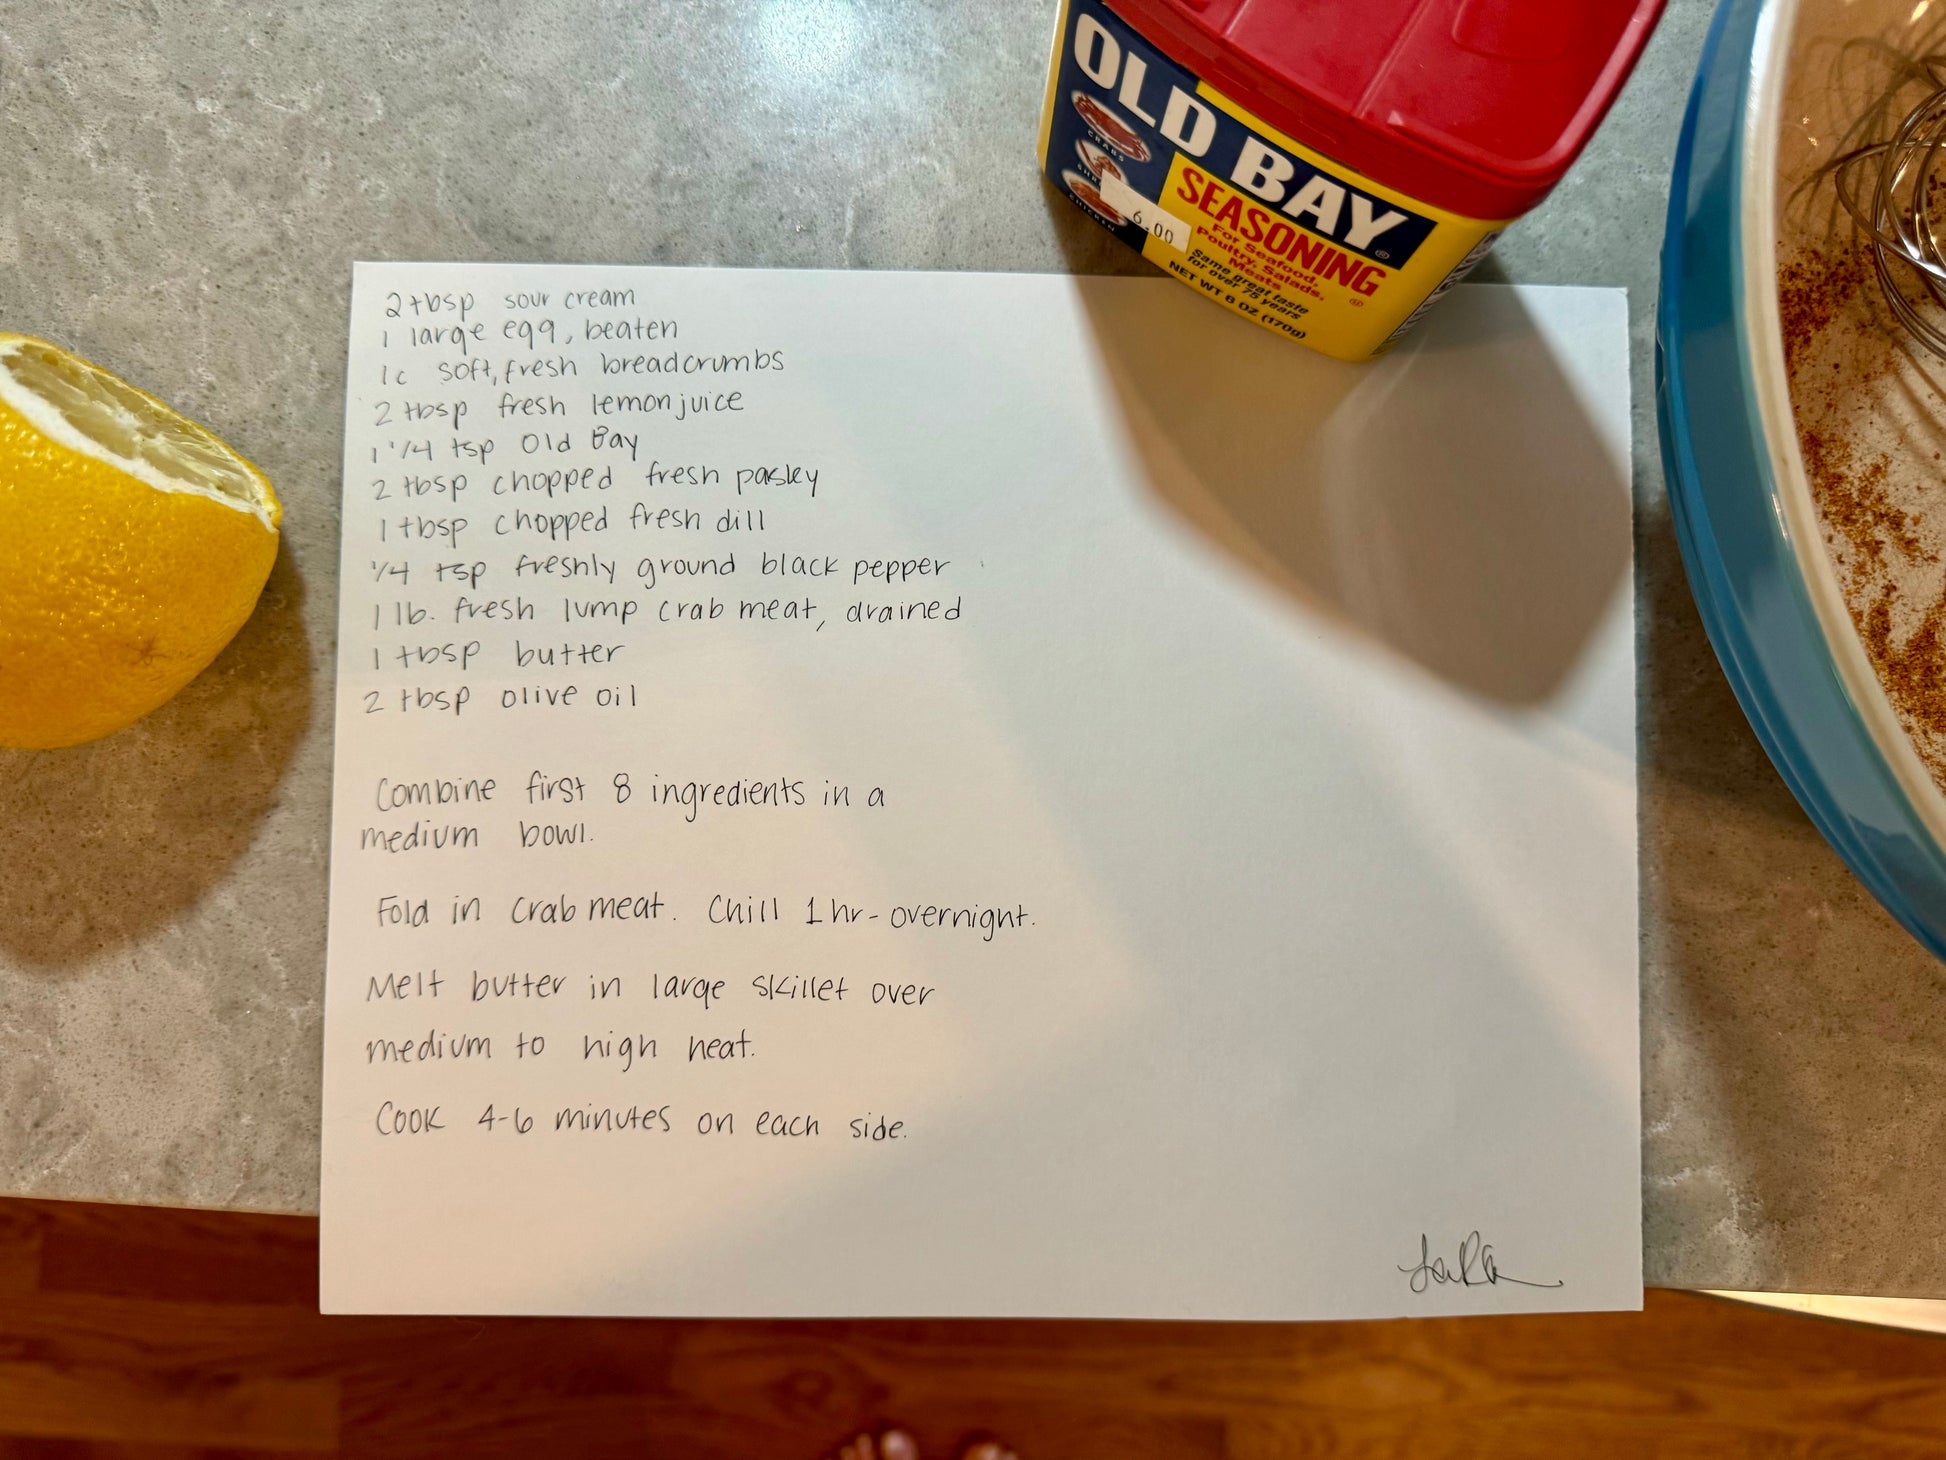 OLD BAY
CRABS
CHICKEN
6.00
SEASONING
For Seafood,
Poultry, Salads,
Meats
Same great taste
for over 75 years
NET WT 6 OZ (170g)
2 tbsp sour cream
1 large egg, beaten
1c soft, fresh breadcrumbs
2 tbsp fresh lemon juice
1 1/4 tsp Old Bay
2 tbsp chopped fresh pasley
1 tbsp chopped fresh dill
1/4 tsp freshly ground black pepper
1 lb. fresh lump crab meat, drained
1 tbsp butter
2 tbsp olive oil
Combine first 8 ingredients in a
medium bowl.
Fold in crab meat. Chill 1 hr - overnight.
Melt butter in large skillet over
medium to high heat.
Cook 4-6 minutes on each side.